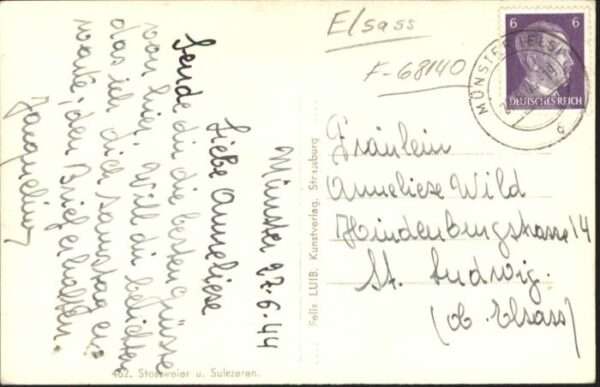 Elsass
F-68140
6 6
DEUTSCHES REICH
MÜNSTER (ELS
Münster 27-6-44
Liebe Anneliese
Sende dir die besten grüsse
von hier. Will dir berichten
das ich dich samstag er-
warte; den Brief erhalten.
Jacqueline
Felix LUIB. Kunstverlag, Strassburg
Fräulein
Anneliese Wild
Hindenburgstrasse 14
St. Ludwig.
(ob. Elsass)
462. Stossweier u. Sulzeren.